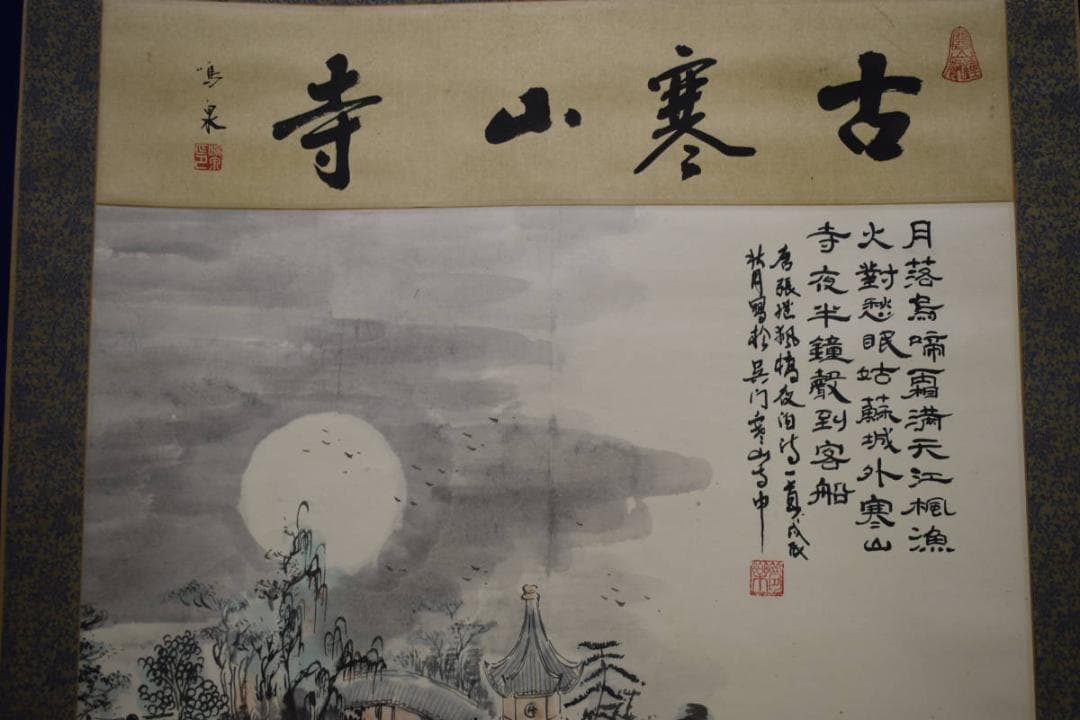 古寒山寺
鳴泉
月落烏啼霜滿天江楓漁
火對愁眠姑蘇城外寒山
寺夜半鐘聲到客船
唐張繼楓橋夜泊詩一首
秋月寫於吳门寒山寺中